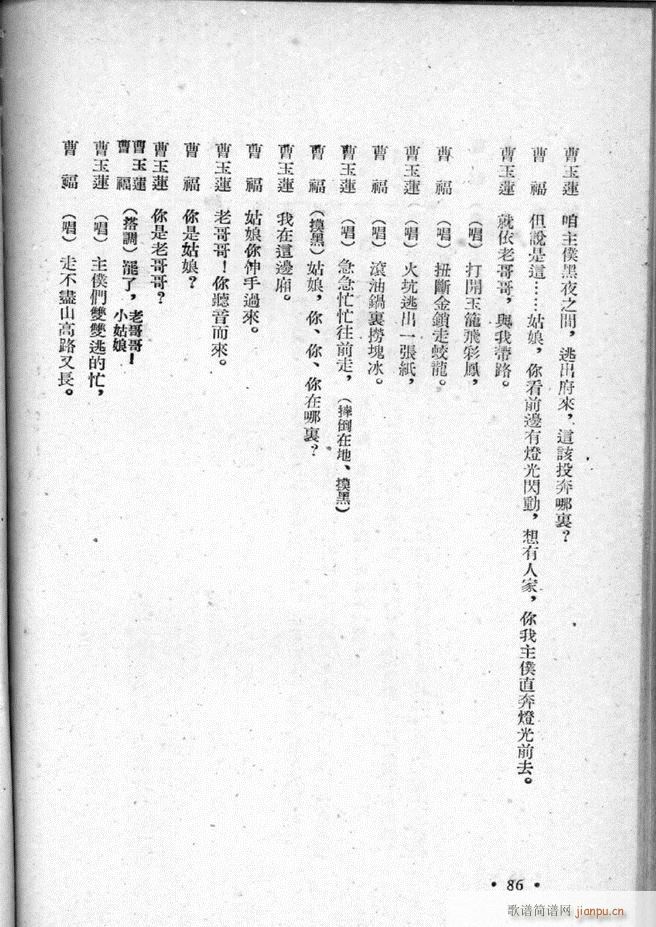 曹玉蓮　咱主僕黑夜之間，逃出府來，這該投奔哪裏？
曹　福　但說是這……姑娘，你看前邊有燈光閃動，想有人家，你我主僕直奔燈光前去。
曹玉蓮　就依老哥哥，與我帶路。
（唱）打開玉籠飛彩鳳，
曹　福　（唱）扭斷金鎖走蛟龍。
曹玉蓮　（唱）火坑逃出一張紙，
曹　福　（唱）滾油鍋裏撈塊冰。
曹玉蓮　（唱）急急忙忙往前走，（摔倒在地、摸黑）
曹　福　（摸黑）姑娘，你、你、你在哪裏？
曹玉蓮　我在這邊廂。
曹　福　姑娘你伸手過來。
曹玉蓮　老哥哥！你聽音而來。
曹　福　你是姑娘？
曹玉蓮　你是老哥哥？
曹玉蓮
曹　福（搭調）罷了，老哥哥！
小姑娘
曹玉蓮　（唱）主僕們雙雙逃的忙，
曹　福　（唱）走不盡山高路又長。
• 86 •
歌谱简谱网 jianpu.cn